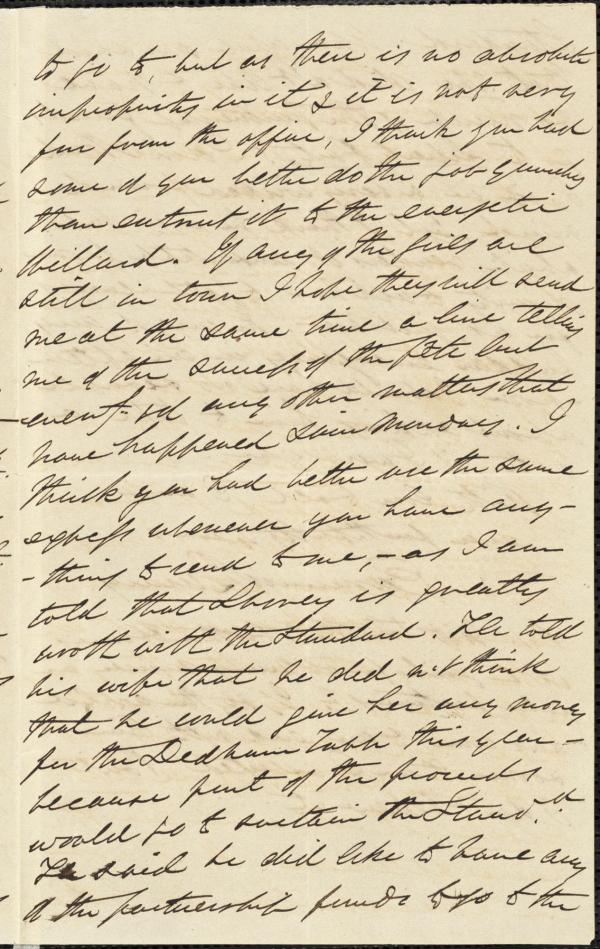 to go to, but as there is no absolute
impropriety in it & it is not very
far from the office, I think you had
some of you better do the job yourselves
than entrust it to the energetic
Willard. If any of the girls are
still in town I hope they will send
me at the same time a line telling
me of the success of the fête but
event, & of any other matters that
have happened since Monday. I
think you had better use the same
express whenever you have any-
-thing to send to me, - as I am
told that Shovey is greatly
wroth with the Standard. He told
his wife that he did not think
that he would give her any money
for the Dedham Table this year -
because part of the proceeds
would go to sustain the Stand.d
He said he did like to have any
of the partnership funds to go to the